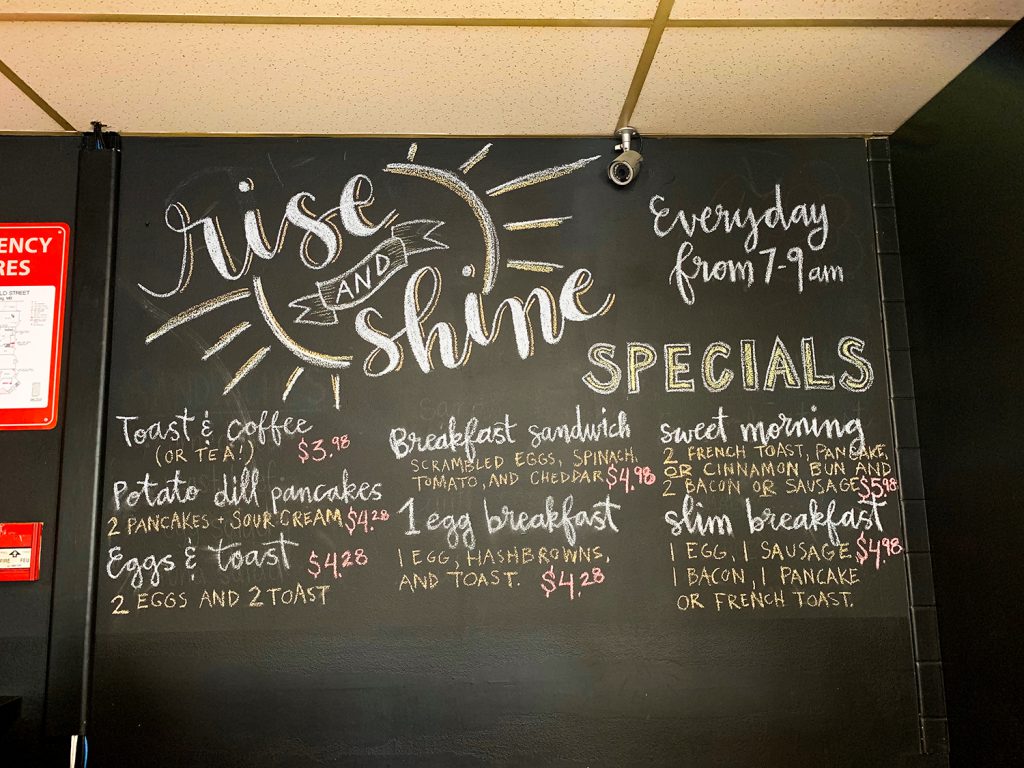 rise
AND
shine
Everyday
from 7-9 am
SPECIALS
Toast & coffee
(OR TEA!) $3.98
Potato dill pancakes
2 PANCAKES + SOUR CREAM $4.28
Eggs & toast $4.28
2 EGGS AND 2 TOAST
Breakfast sandwich
SCRAMBLED EGGS, SPINACH,
TOMATO, AND CHEDDAR $4.98
1 egg breakfast
1 EGG, HASHBROWNS,
AND TOAST. $4.28
sweet morning
2 FRENCH TOAST, PANCAKE,
OR CINNAMON BUN AND
2 BACON OR SAUSAGE $5.98
slim breakfast
1 EGG, 1 SAUSAGE, $4.98
1 BACON, 1 PANCAKE
OR FRENCH TOAST.
ENCY
RES
LD STREET